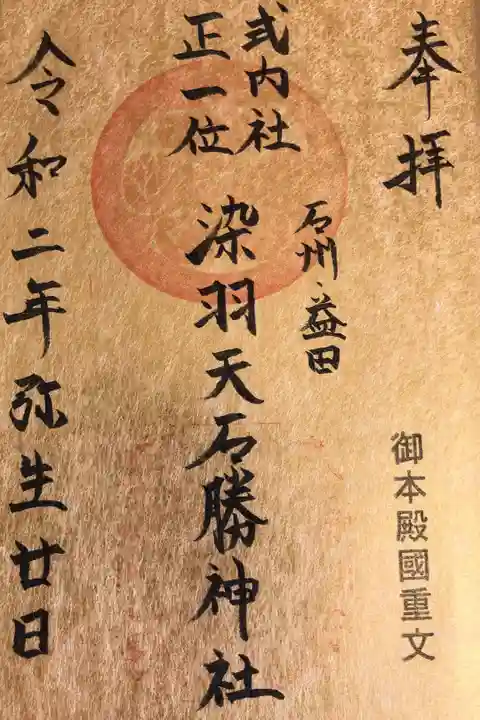 奉拝
御本殿國重文
石州・益田
式内社
正一位
染羽天石勝神社
令和二年弥生廿日